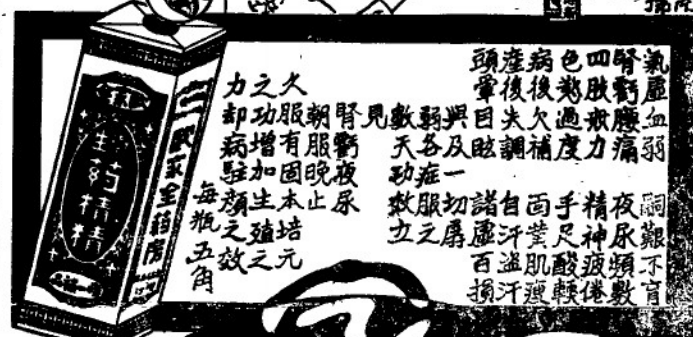 氣虛血弱 嗣艱不育
腎虧腰痛 夜尿頻數
四肢敷力 精神疲倦
色慾過度 手足酸輭
病後欠補 面瑩肌瘦
產後失調 自汗盜汗
頭暈目眩 諸虛百損
與及一切孱
弱各症服之
數天功效立
見
腎虧夜尿
朝服晚止
久服有固本培元
之功增加生殖之
力却病駐顏之效
每瓶五角
生药精精